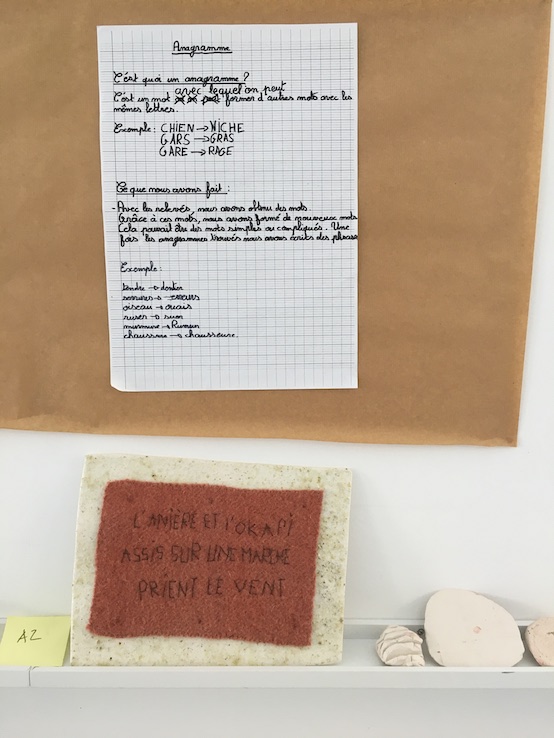 Anagramme
C'est quoi un anagramme ?
avec lequel on peut
C'est un mot former d'autres mots avec les
mêmes lettres.
Exemple : CHIEN → NICHE
GARS → GRAS
GARE → RAGE
Ce que nous avons fait :
- Avec les relevés, nous avons obtenu des mots.
Grâce à ces mots, nous avons formé de nouveaux mots.
Cela pouvait être des mots simples ou compliqués. Une
fois les anagrammes trouvés nous avons écrits des phrases
Exemple :
tendre →
→
oiseau → ouais
ruser →
murmure → Rumun
→ chausseure.
L'ANIÈRE ET l'OKAPI
ASSIS SUR UNE MARCHE
PRIENT LE VENT
A2